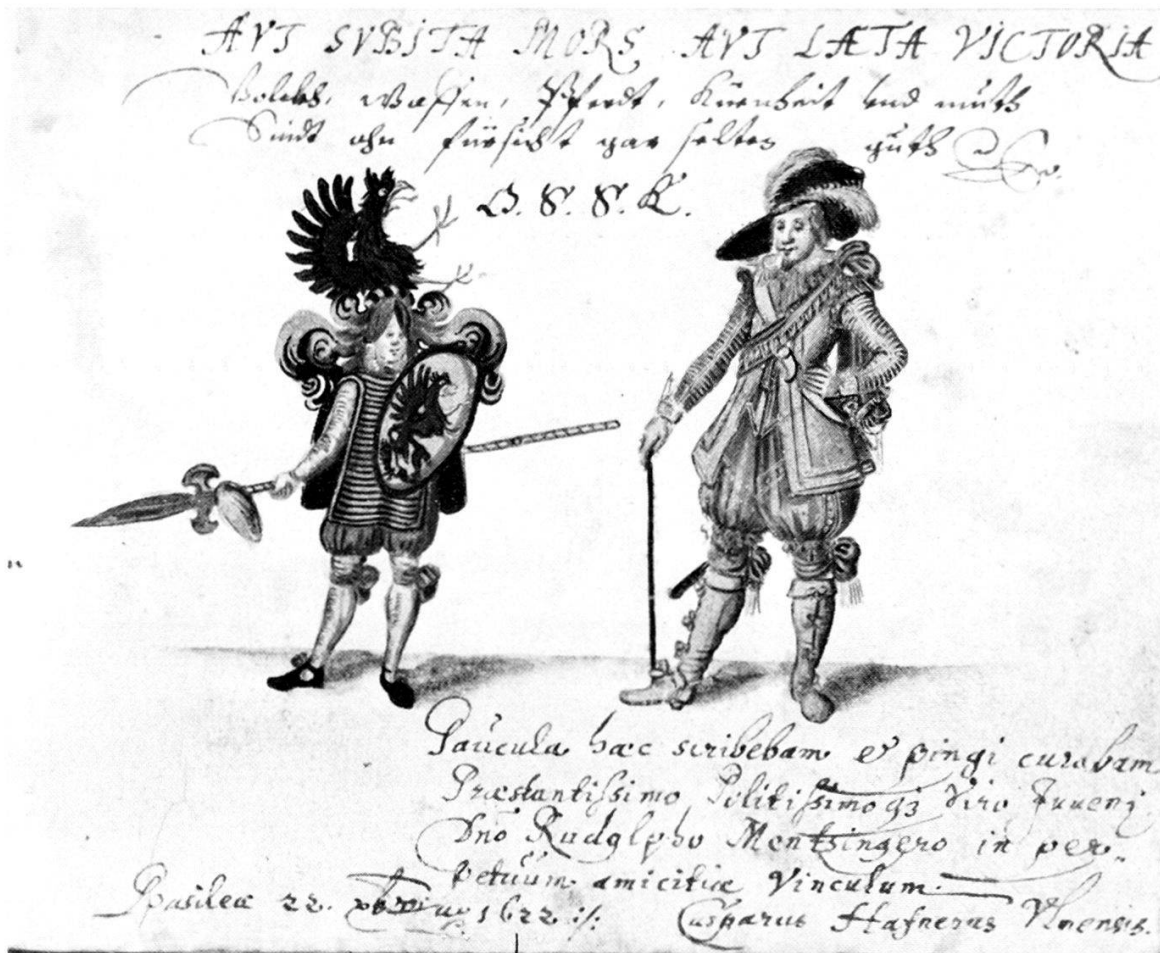 AVT SVBITA MORS AVT LÆTA VICTORIA
Volckh, Waffen, Pferdt, Küenheit und muth
Sindt ohn fürsicht gar selten guth
G. S. S. K.
Paucula hæc scribebam et pingi curabam
Præstantissimo Politissimoq3 Viro Juveni
Dno Rudolpho Mentzingero in per-
petuum amicitiæ Vinculum.
Basileæ 22. 1622
Casparus Hafnerus Vlmensis.